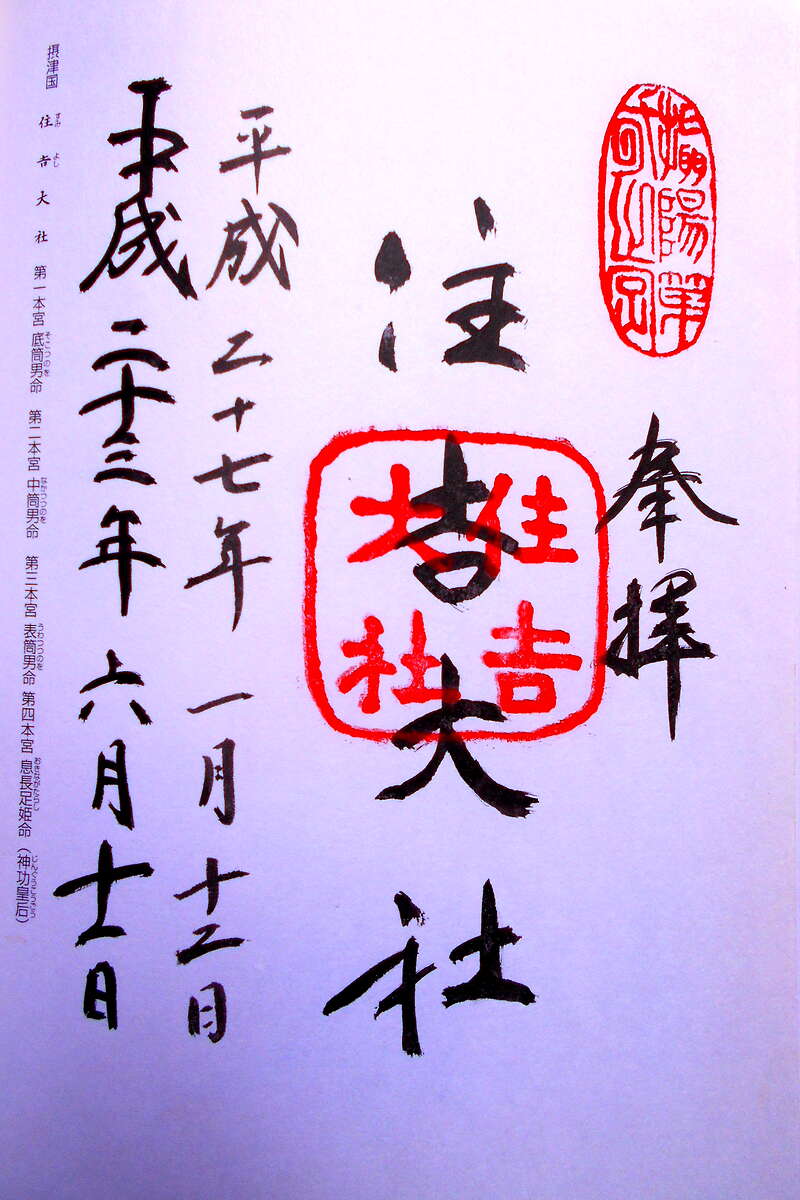 奉拝
住吉大社
住吉
大社
平成二十七年一月十二日
平成二十三年六月十二日
摂津国 住吉大社 第一本宮 底筒男命 第二本宮 中筒男命 第三本宮 表筒男命 第四本宮 息長足姫命（神功皇后）